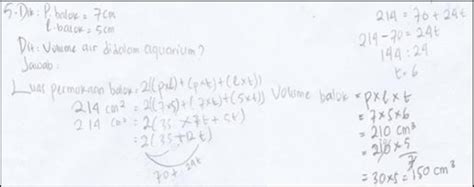 5. Dik: P. balok = 7cm
l. balok = 5cm
Dit: Volume air didalam aquarium?
Jawab:
Luas permukaan balok = 2((pxl) + (pxt) + (lxt))
214 cm² = 2((7x5) + (7xt) + (5xt))
214 cm² = 2(35 + 7t + 5t)
= 2(35 + 12t)
70 + 24t
214 = 70 + 24t
214 - 70 = 24t
144 : 24
t = 6
Volume balok = pxlxt
= 7x5x6
= 210 cm³
= 210 x 5
7
= 30x5 = 150 cm³